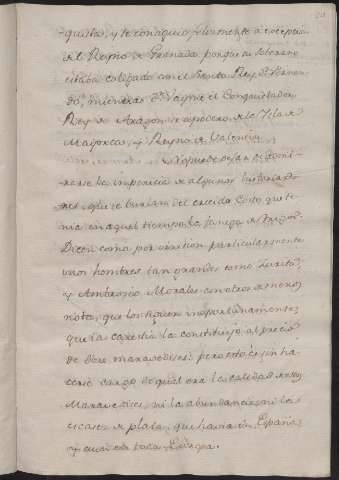 quistas, y se consiguió felizmente a excepcion
del Reyno de Granada porque su soberano
estaba coligado con el Santo Rey Dn. Fernan
do, mientras Dn. Jayme el Conquistador
Rey de Aragon se apoderó de la Isla de
Mallorca, y Reyno de Valencia.
No puede dejar de admi
rarse la impericia de algunos historiado
res, que se burlan del crecido costo que te
nia en aquel tiempo la fanega de trigo.
Dicen como por irrision particularmente
unos hombres tan grandes como Zurita,
y Ambrosio Morales con otros de menos
nota, que los siguen inoportunamente,
que la carestia la constituyó al precio
de doce maravedises: pero esto es sin ha
cerse cargo de qual era la calidad de los
Maravedises, ni la abundancia, ni la
escasez de plata, que havia en España,
y aun en toda Europa.